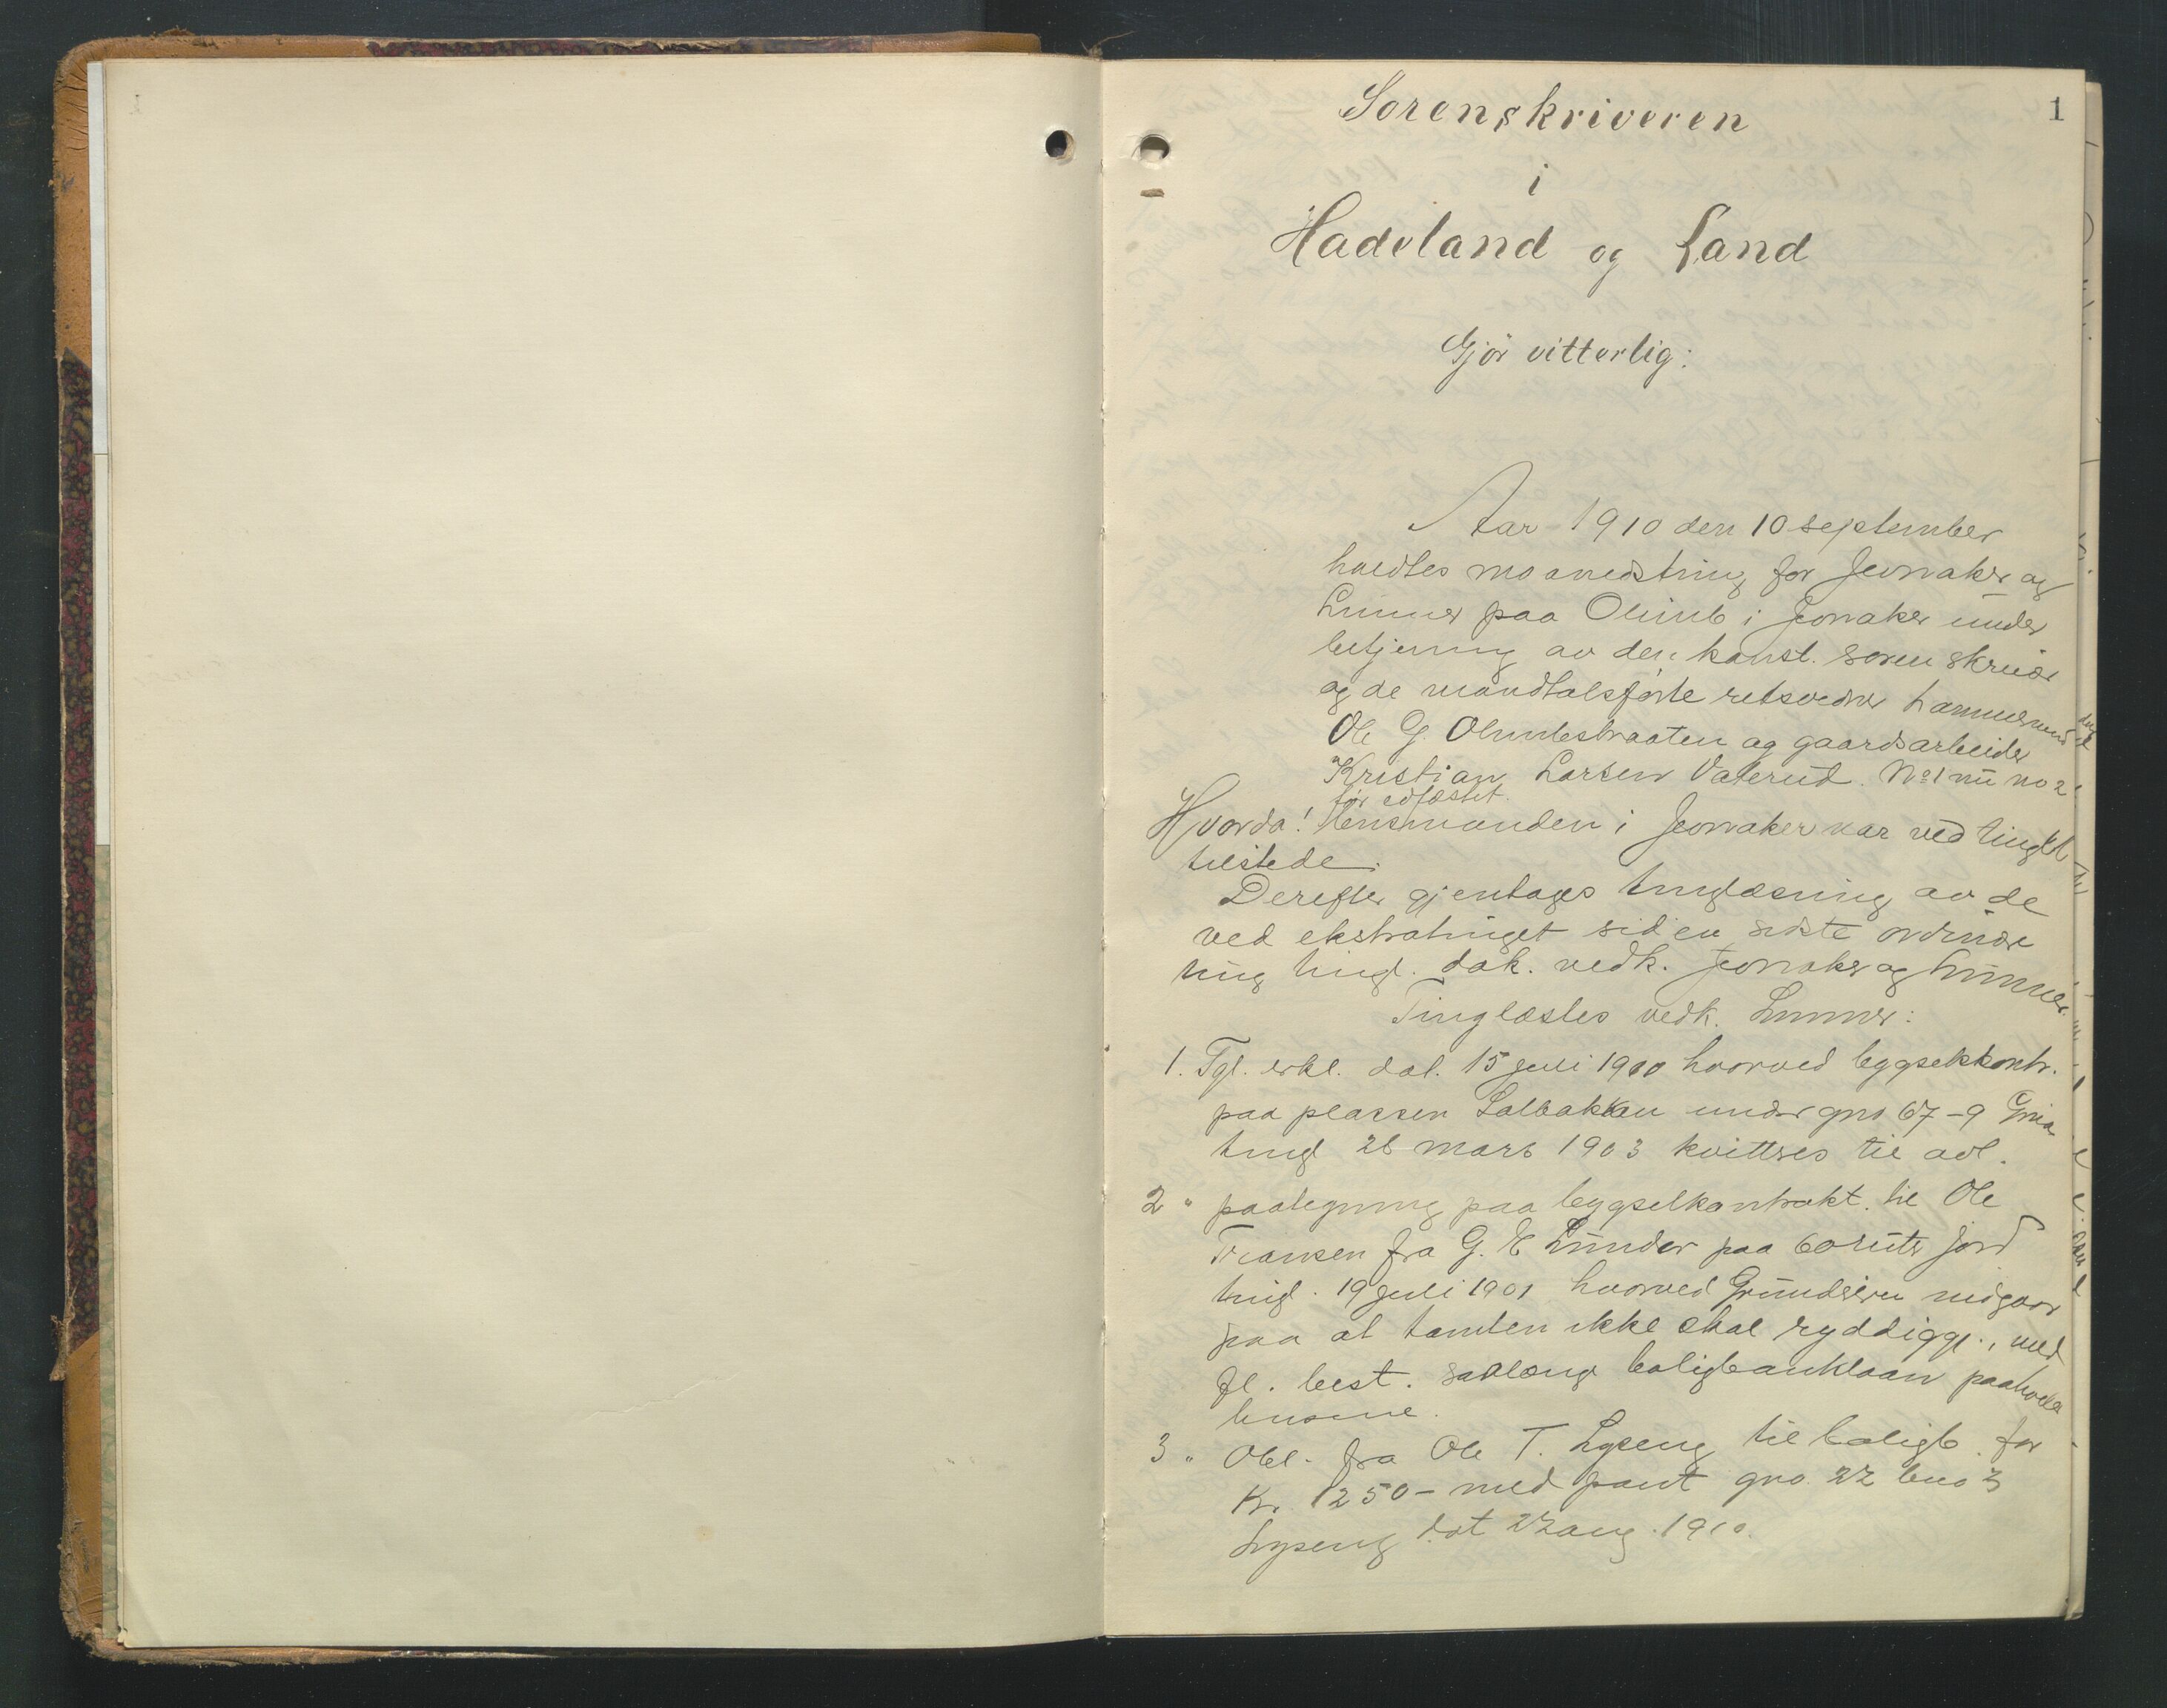 1
Sorenskriveren
i
Hadeland og Land
Gjör vitterlig:
Aar 1910 den 10 september
holdtes maanedsting for Jevnaker og
Lunner paa Olimb i Jevnaker under
betjening av den konst. sorenskriver
og de mandtalsførte retsvidner
Ole G. Olimbsbraaten og gaardsarbeider
Kristian Larsen Vaterud. No 1 nu no 2
før edfæstet.
Hvorda! Lensmanden i Jevnaker var ved tinget
tilstede.
Derefter gjentages tinglæsning av de
ved ekstratinget siden sidste ordinære
ting tingl. dok. vedk. Jevnaker og Lunner.
Tinglæstes vedk. Lunner:
1. Tgl. erkl. dat. 15 juli 1910 hvorved bygselkontr.
paa plassen Salbakken under gno 67-9
tingl 26 mars 1903 kvitteres til avl.
2 " paategning paa bygselkontrakt til Ole
Transen fra G. E Lunder paa 60 ruter jord
tingl. 19 juli 1901 hvorved Grundeieren indgaar
paa at tomten ikke skal ryddiggj., med
fl. best. saalænge boligbanklaan paahviler
husene.
3 " Obl. fra Ole T. Lyseng til boligb. for
Kr. 1250 - med pant gno 22 bno 3
Lyseng dat 22 aug. 1910.